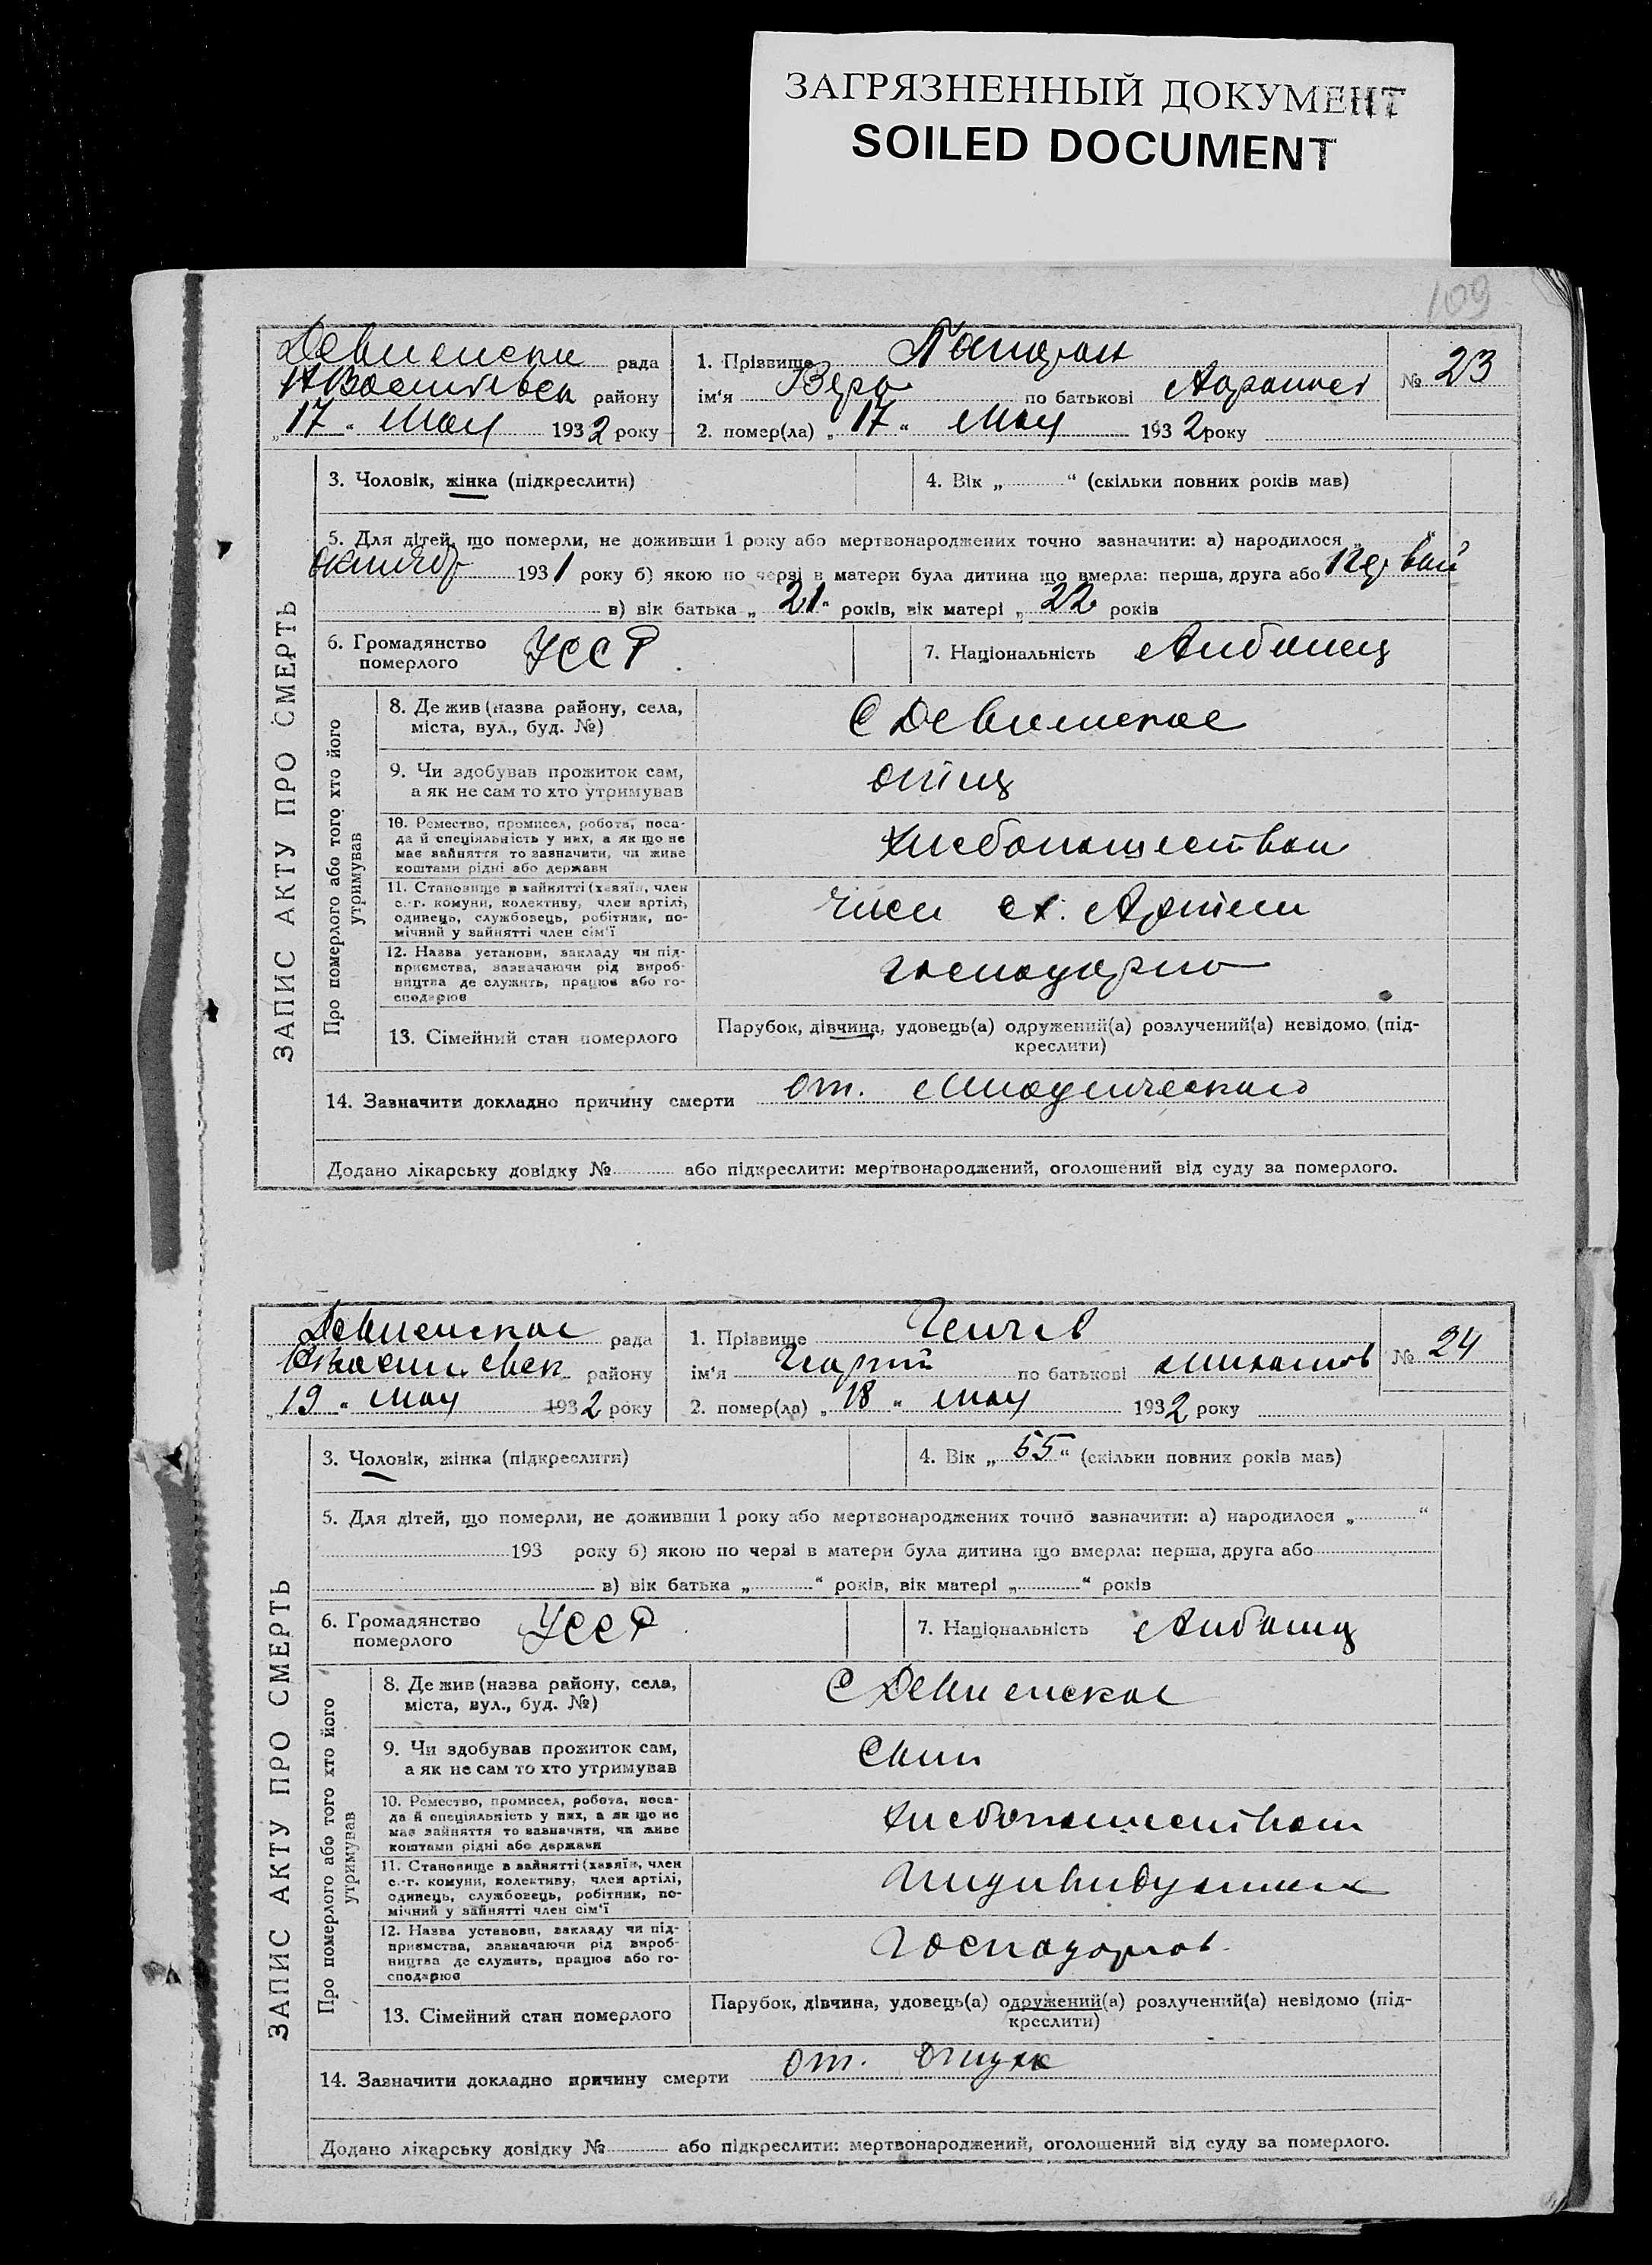 ЗАГРЯЗНЕННЫЙ ДОКУМЕНТ
SOILED DOCUMENT
109
рада
1. Прізвище
№ 23
району
ім'я Вера по батькові
„17“ мая 1932 року
2. помер(ла) „17“ мая 1932 року
ЗАПИС АКТУ ПРО СМЕРТЬ
3. Чоловік, жінка (підкреслити)
4. Вік „ “ (скільки повних років мав)
5. Для дітей, що померли, не доживши 1 року або мертвонароджених точно зазначити: а) народилося „ “
1931 року б) якою по черзі в матери була дитина що вмерла: перша, друга або
в) вік батька „21“ років, вік матері „22 років
6. Громадянство померлого УССР
7. Національність Албанец
Про померлого або того хто його утримував
8. Де жив (назва району, села,
міста, вул., буд. №)
С Девленское
9. Чи здобував прожиток сам,
а як не сам то хто утримував
отец
10. Ремество, промисел, робота, поса-
да й спеціяльність у них, а як що не
має зайняття то зазначити, чи живе
коштами рідні або держави
хлебопашеством
11. Становище в зайнятті (хазяїн, член
с.-г. комуни, колективу, член артілі,
одинець, службовець, робітник, по-
мічний у зайнятті член сім'ї
член сх. Артели
12. Назва установи, закладу чи під-
приємства, зазначаючи рід вироб-
ництва де служить, працює або го-
сподарює
13. Сімейний стан померлого
Парубок, дівчина, удовець(а) одружений(а) розлучений(а) невідомо (під-
креслити)
14. Зазначити докладно причину смерти от.
Додано лікарську довідку № або підкреслити: мертвонароджений, оголошений від суду за померлого.
Девленское рада
1. Прізвище
№ 24
району
ім'я по батькові
„19“ мая 1932 року
2. помер(ла) „18“ мая 1932 року
ЗАПИС АКТУ ПРО СМЕРТЬ
3. Чоловік, жінка (підкреслити)
4. Вік „55“ (скільки повних років мав)
5. Для дітей, що померли, не доживши 1 року або мертвонароджених точно зазначити: а) народилося „ “
193 року б) якою по черзі в матери була дитина що вмерла: перша, друга або
в) вік батька „ “ років, вік матері „ “ років
6. Громадянство померлого УССР
7. Національність Албанец
Про померлого або того хто його утримував
8. Де жив (назва району, села,
міста, вул., буд. №)
С Девленское
9. Чи здобував прожиток сам,
а як не сам то хто утримував
10. Ремество, промисел, робота, поса-
да й спеціяльність у них, а як що не
має зайняття то зазначити, чи живе
коштами рідні або держави
хлебопашеством
11. Становище в зайнятті (хазяїн, член
с.-г. комуни, колективу, член артілі,
одинець, службовець, робітник, по-
мічний у зайнятті член сім'ї
12. Назва установи, закладу чи під-
приємства, зазначаючи рід вироб-
ництва де служить, працює або го-
сподарює
13. Сімейний стан померлого
Парубок, дівчина, удовець(а) одружений(а) розлучений(а) невідомо (під-
креслити)
14. Зазначити докладно причину смерти от.
Додано лікарську довідку № або підкреслити: мертвонароджений, оголошений від суду за померлого.